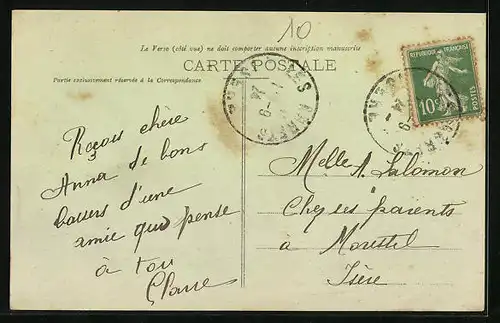 10
Le Verso (côté vue) ne doit comporter aucune inscription manuscrite
CARTE POSTALE
Partie exclusivement réservée à la Correspondance.
REPUBLIQUE FRANÇAISE
10c
POSTES
Reçois chère
Anna de bons
baisers d'une
amie qui pense
à toi
Claire
Melle A. Salomon
Chez les parents
à Morestel
Isère